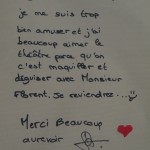 je me suis trop
bien amuser et j'ai
beaucoup aimer le
théâtre parce qu'on
c'est maquiller et
déguiser avec Monsieur
Florent. Je reviendrez...
Merci Beaucoup
aurevoir